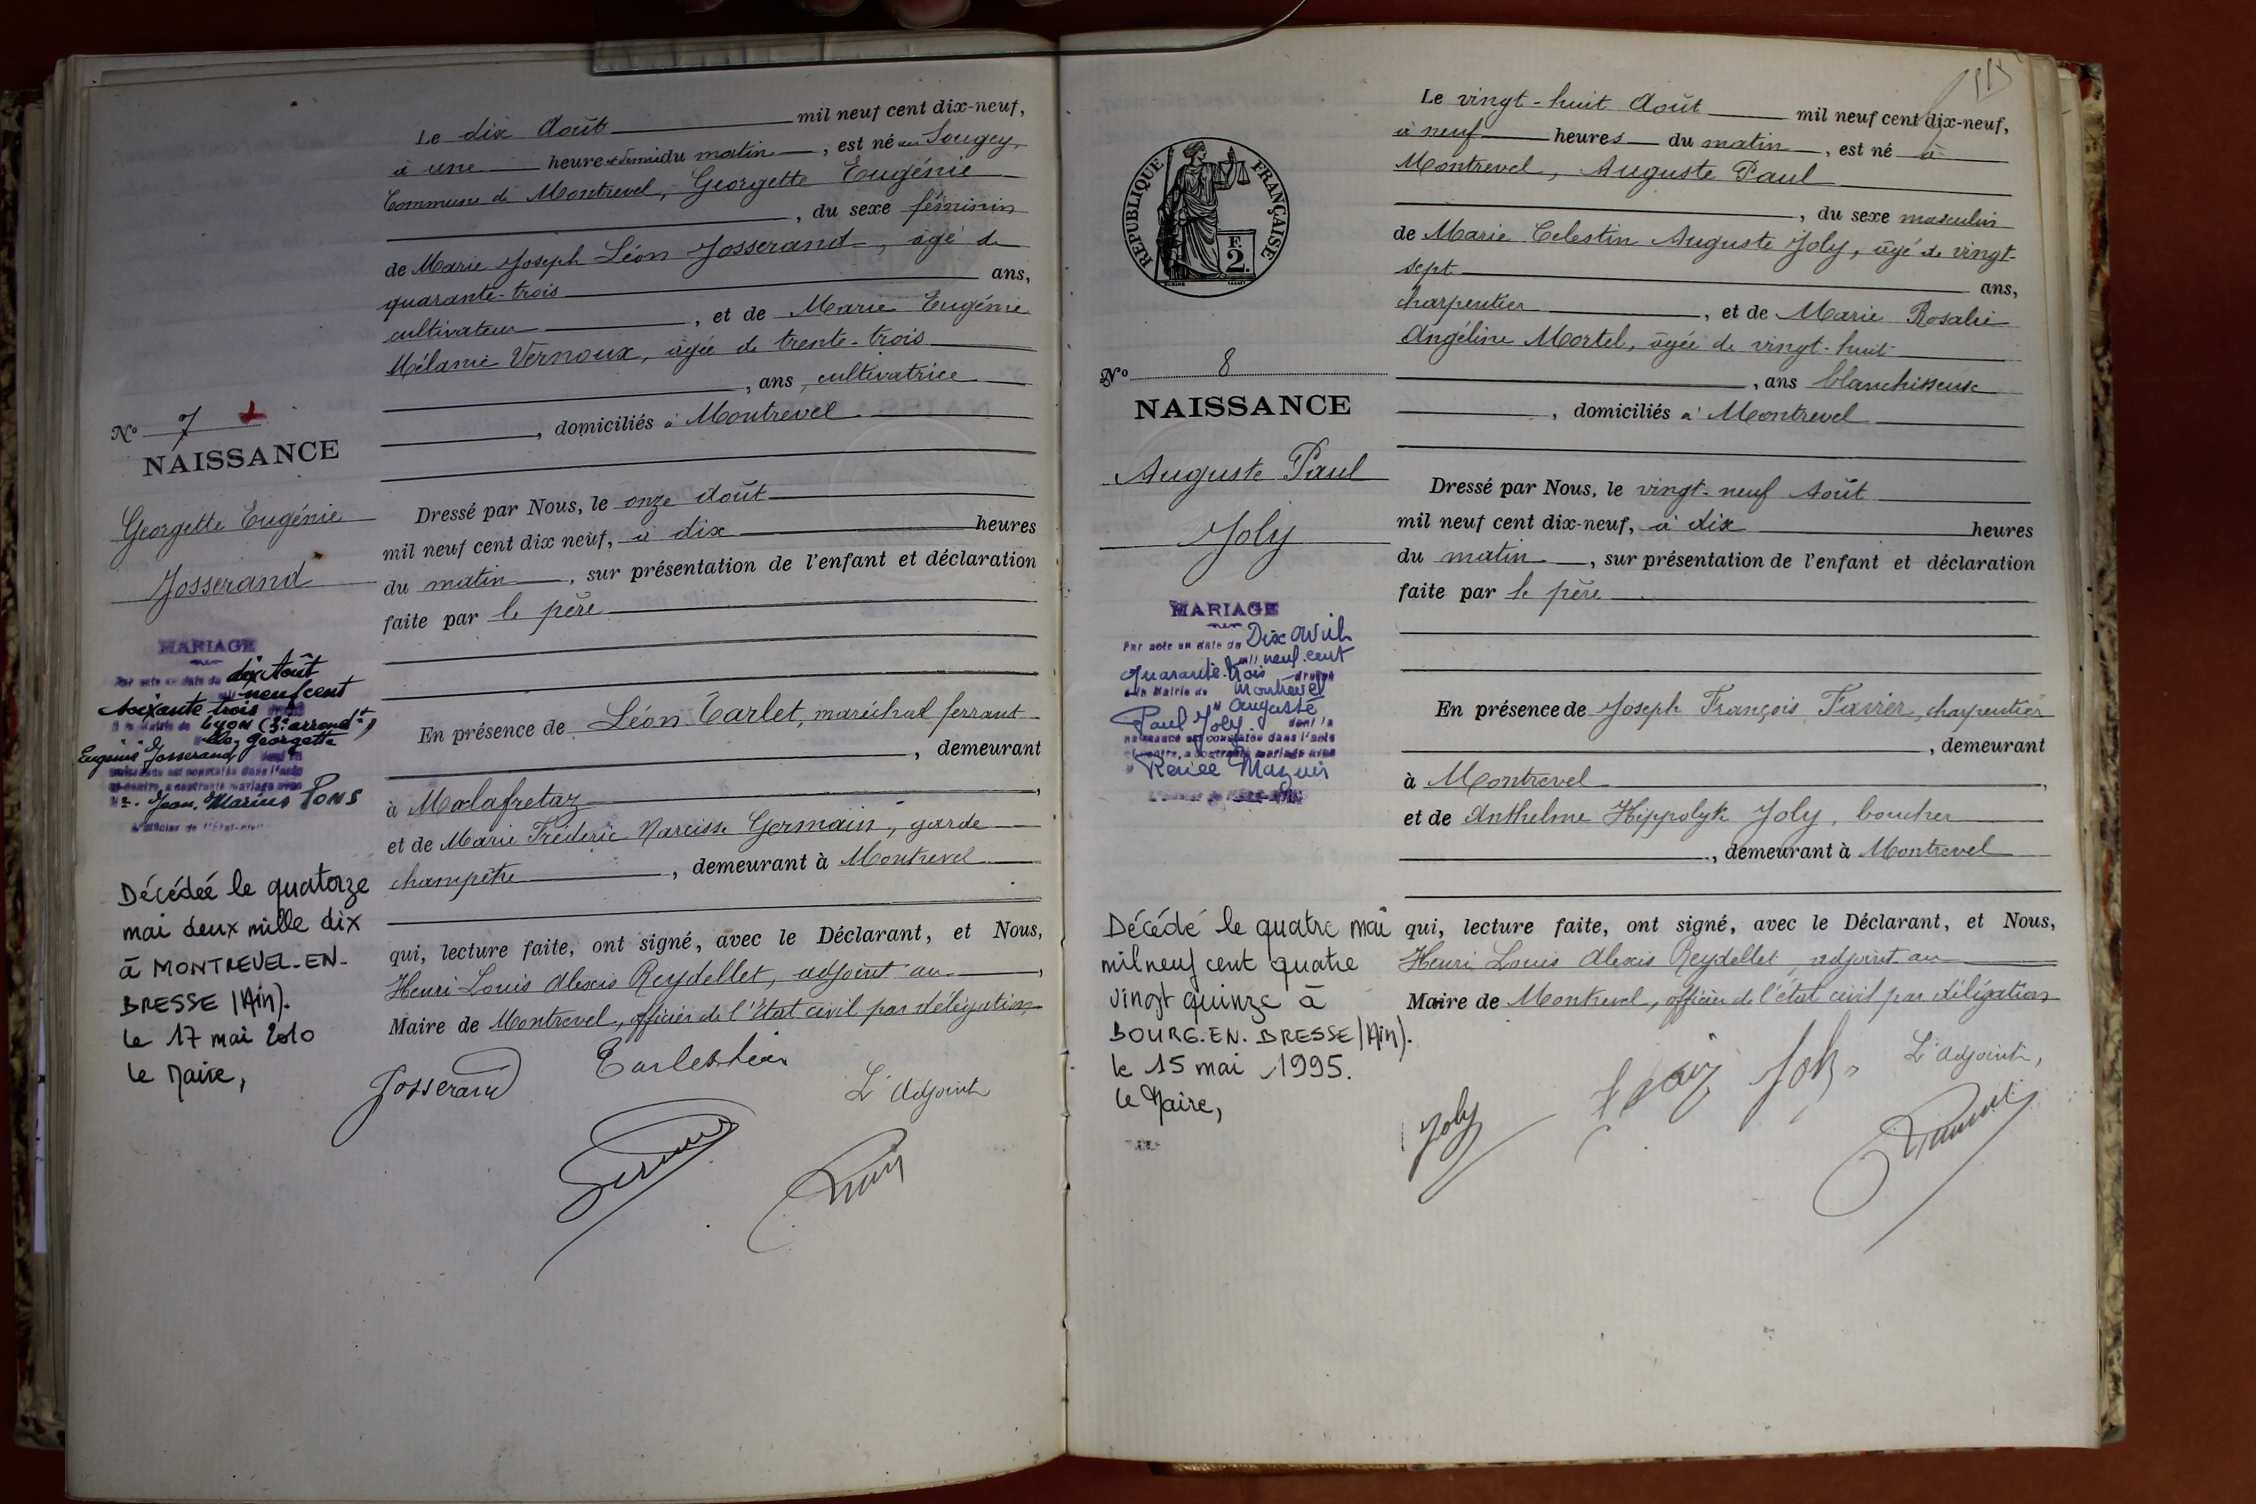 Le dix Août mil neuf cent dix-neuf,
à une heure et demie du matin, est né au Sougey,
Commune de Montrevel, Georgette Eugénie
, du sexe féminin
de Marie Joseph Léon Josserand, âgé de
quarante-trois ans,
cultivateur, et de Marie Eugénie
Mélanie Vernoux, âgée de trente-trois
, ans, cultivatrice
, domiciliés à Montrevel
No 7
NAISSANCE
Georgette Eugénie
Josserand
Dressé par Nous, le onze Août
mil neuf cent dix neuf, à dix heures
du matin, sur présentation de l'enfant et déclaration
faite par le père
MARIAGE
Par acte en date du dix Août
mil neuf cent
soixante trois
à la Mairie de Lyon (3e arrondt)
Georgette
Eugénie Josserand dont la
naissance est constatée dans l'acte
ci-contre, a contracté mariage avec
Jean, Marius PONS
L'officier de l'État-civil
En présence de Léon Carlet, maréchal ferrant
, demeurant
à Malafretaz,
et de Marie Frédéric Narcisse Germain, garde
champêtre, demeurant à Montrevel
Décédée le quatorze
mai deux mille dix
à MONTREVEL-EN-
BRESSE (Ain).
le 17 mai 2010
Le Maire,
qui, lecture faite, ont signé, avec le Déclarant, et Nous,
Henri Louis Alexis Reydellet, adjoint au,
Maire de Montrevel, officier de l'état civil par délégation
Josserand
Carlet Léon
L'Adjoint
RÉPUBLIQUE FRANÇAISE
F.
2.
Le vingt-huit Août mil neuf cent dix-neuf,
à neuf heures du matin, est né à
Montrevel, Auguste Paul
, du sexe masculin
de Marie Celestin Auguste Joly, âgé de vingt-
sept ans,
charpentier, et de Marie Rosalie
Angéline Mortel, âgée de vingt-huit
, ans blanchisseuse
, domiciliés à Montrevel
No 8
NAISSANCE
Auguste Paul
Joly
Dressé par Nous, le vingt-neuf Août
mil neuf cent dix-neuf, à dix heures
du matin, sur présentation de l'enfant et déclaration
faite par le père
MARIAGE
Par acte en date du Dix avril
mil neuf cent
quarante-trois dressé
à la Mairie de Montrevel
Auguste
Paul Joly dont la
naissance est constatée dans l'acte
ci-contre, a contracté mariage avec
Renée Mazuir
En présence de Joseph François Favier, charpentier
, demeurant
à Montrevel,
et de Anthelme Hippolyte Joly, boucher
, demeurant à Montrevel
Décédé le quatre mai
mil neuf cent quatre
vingt quinze à
BOURG-EN-BRESSE (Ain).
le 15 mai 1995.
Le Maire,
qui, lecture faite, ont signé, avec le Déclarant, et Nous,
Henri Louis Alexis Reydellet, adjoint au
Maire de Montrevel, officier de l'état civil par délégation
L'Adjoint,
Joly
Joly